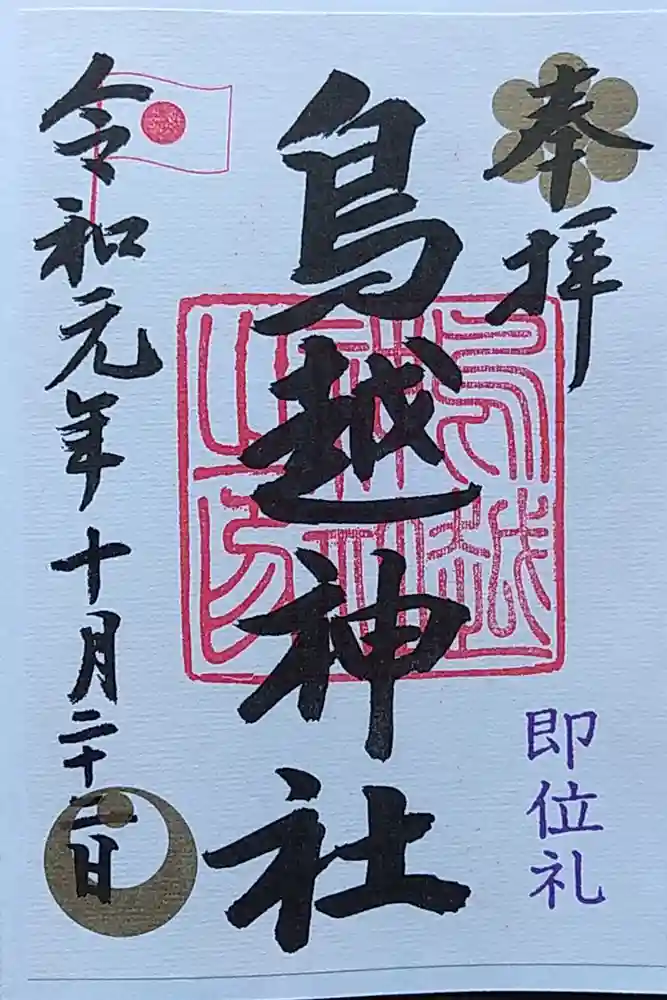 奉拝
即位礼
鳥越神社
令和元年十月二十二日